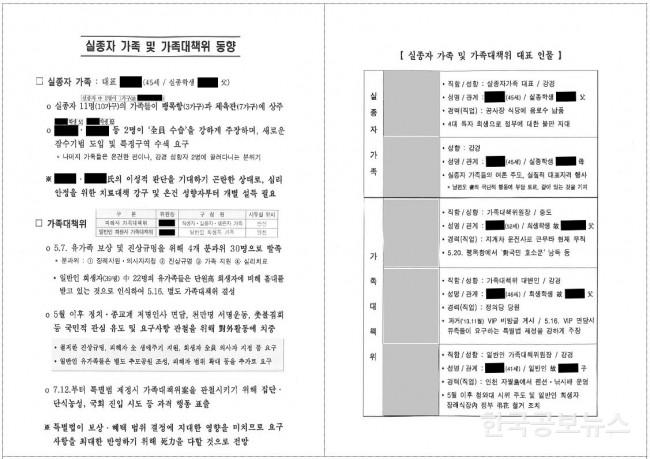 실종자 가족 및 가족대책위 동향
□ 실종자 가족 : 대표 (45세 / 실종학생 父)
o 실종자 11명(10가구)의 가족들이 팽목항(3가구)과 체육관(7가구)에 상주
· 등 2명이 '全員 수습'을 강하게 주장하며, 새로운
잠수기법 도입 및 특정구역 수색 요구
* 나머지 가족들은 온건한 편이나, 강경 성향자 2명에 끌려다니는 분위기
※ · 氏의 이성적 판단을 기대하기 곤란한 상태로, 심리
안정을 위한 치료대책 강구 및 온건 성향자부터 개별 설득 필요
□ 가족대책위
구 분 위원장 구 성 원 사무실 위치
피해자 가족대책위 희생자·실종자·생존자 가족 안산
일반인 희생자 가족대책위 일반인 희생자 가족 인천
o 5.7. 유가족 보상 및 진상규명을 위해 4개 분과위 30명으로 발족
* 분과위 : ① 장례지원·의사자지정 ② 진상규명 ③ 가족 지원 ④ 심리치료
- 일반인 희생자(39명) 中 22명의 유가족들은 단원高 희생자에 비해 홀대를
받고 있는 것으로 인식하여 5.16. 별도 가족대책위 결성
o 5월 이후 정치·종교계 저명인사 면담, 천만명 서명운동, 촛불집회
등 국민적 관심 유도 및 요구사항 관철을 위해 對外활동에 치중
· 철저한 진상규명, 피해자 全 생애주기 지원, 희생자 全員 의사자 지정 等 요구
· 일반인 유가족들은 별도 추모공원 조성, 피해자 범위 확대 등을 추가로 요구
o 7.12.부터 특별법 제정시 가족대책위案을 관철시키기 위해 집단·
단식농성, 국회 진입 시도 등과 격행동 표출
※ 특별법이 보상·혜택 범위 결정에 지대한 영향을 미치므로 요구
사항을 최대한 반영하기 위해 死力을 다할 것으로 전망
[ 실종자 가족 및 가족대책위 대표 인물 ]
실종자 가족
· 직함 / 성향 : 실종자가족 대표 / 강경
· 성명 / 관계 : (45세) / 실종학생 父
· 경력(직업) : 공사장 식당에 음료수 납품
· 4대 독자 희생으로 정부에 대한 불만 지대
· 성향 : 강경
· 성명 / 관계 : (45세) / 실종학생 母
· 실종자 가족들의 여론 주도, 실질적 대표자격 행사
가족대책위
· 직함 / 성향 : 가족대책위원장 / 중도
· 성명 / 관계 : (52세) / 희생학생 故 父
· 경력(직업) : 지게차 운전사로 근무타 현재 무직
· 5.20. 팽목항에서 '對국민 호소문' 낭독 등
· 직함 / 성향 : 가족대책위 대변인 / 강경
· 성명 / 관계 : (46세) / 희생학생 故 父
· 경력(직업) : 정의당 당원
· 과거('13.11월) VIP 비방글 게시 / 5.16. VIP 면담시
유족들이 요구하는 특별법 제정을 강하게 주장
· 직함 / 성향 : 일반인 가족대책위원장 / 강경
· 성명 / 관계 : (41세) / 일반인 故 子
· 경력(직업) : 인천 자월島에서 펜션·낚시배 운영
· 5월 이후 청와대 시위 주도 및 일반인 희생자
장례식장內 정부 弔花 철거 조치
한국공보뉴스